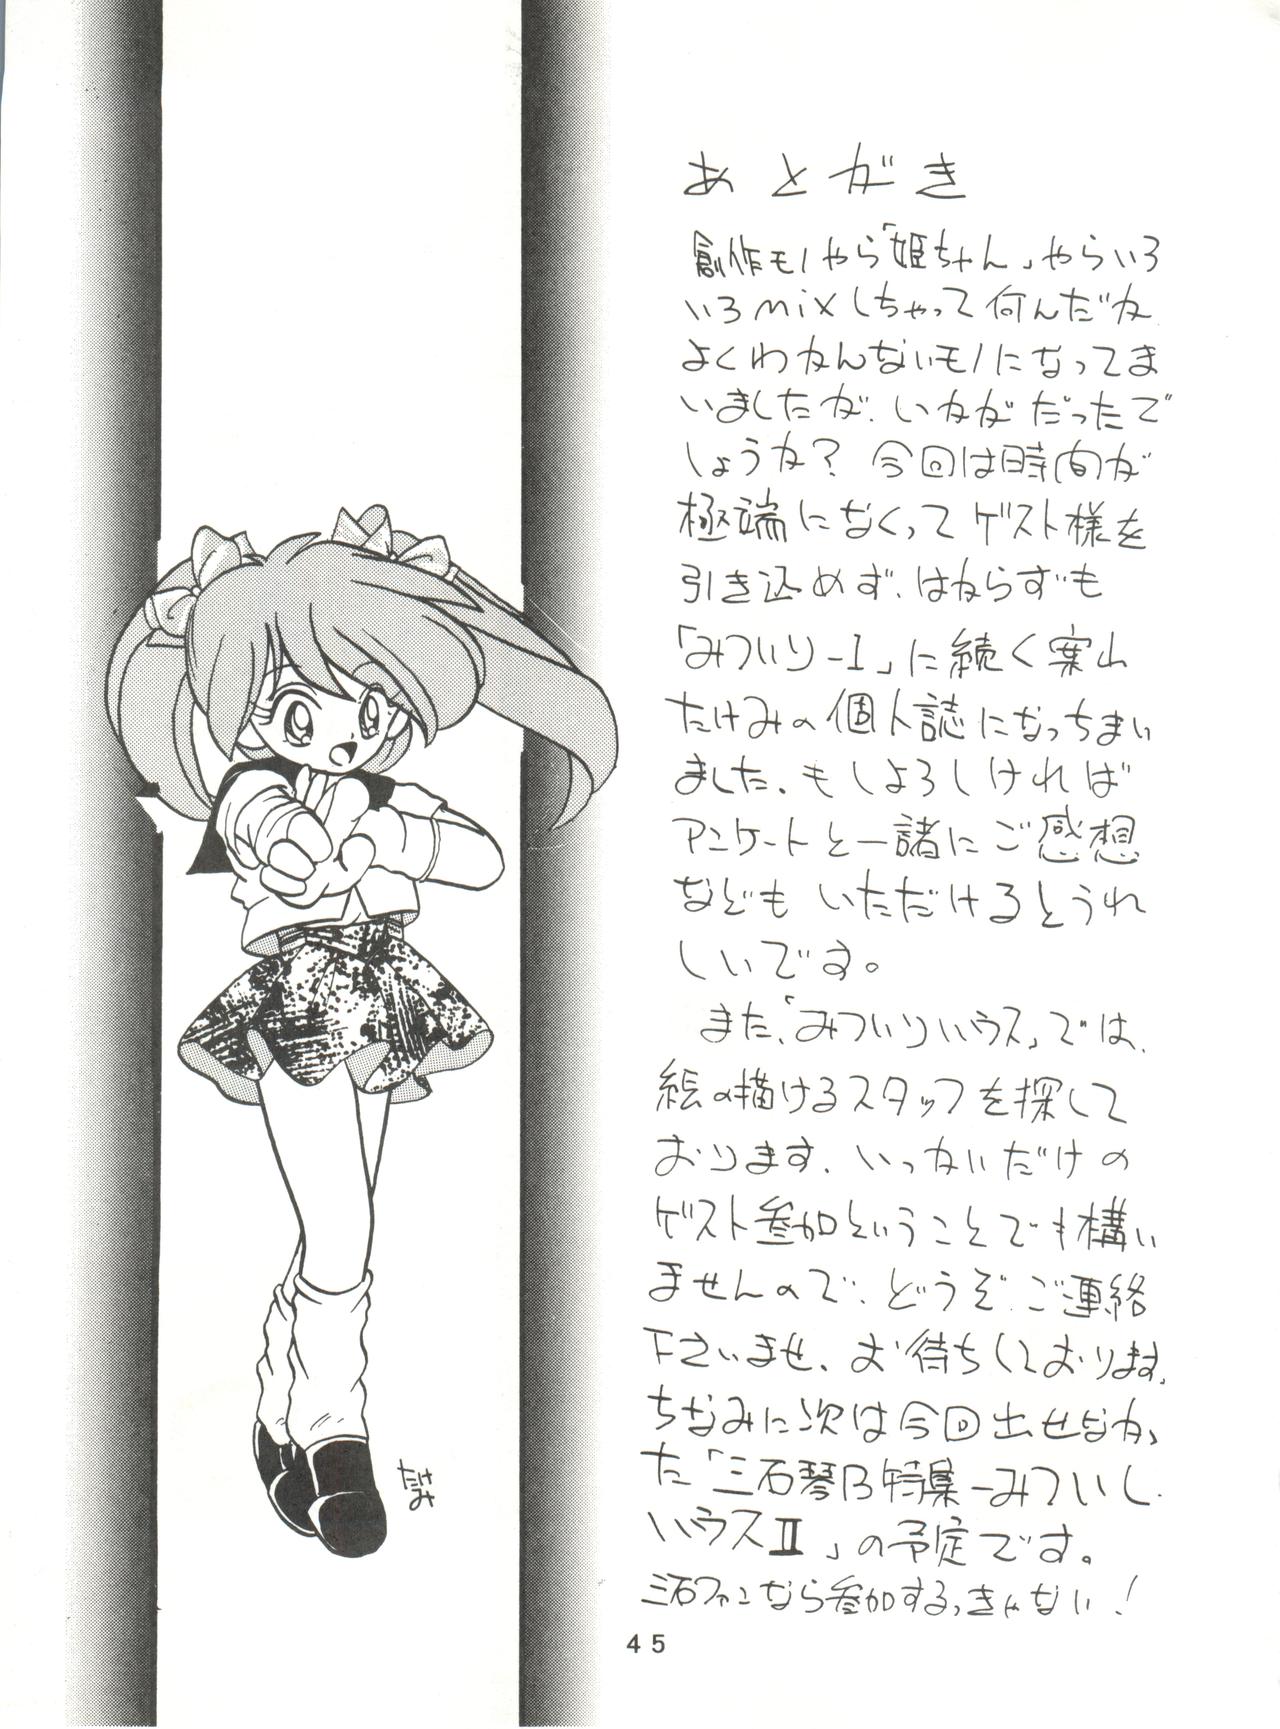 あとがき
創作モノやら「姫ちゃん」やらいろ
いろmixしちゃって何んだか
よくわかんないモノになってま
いましたが、いかがだったで
しょうか？ 今回は時間が
極端になくってゲスト様を
引き込めず、はからずも
「みついりー1」に続く案山
たけみの個人誌になっちまい
ました。もしよろしければ
アンケートと一諸にご感想
などもいただけるとうれ
しいです。
また、「みついりハウス」では、
絵の描けるスタッフを探して
おります。いっかいだけの
ゲスト参加ということでも構い
ませんので、どうぞ、ご連絡
下さいませ。お待ちしております。
ちなみに次は今回出せなかっ
た「三石琴乃特集ーみついし
ハウスⅡ」の予定です。
三石ファンなら参加するっきゃない！
たけみ
45